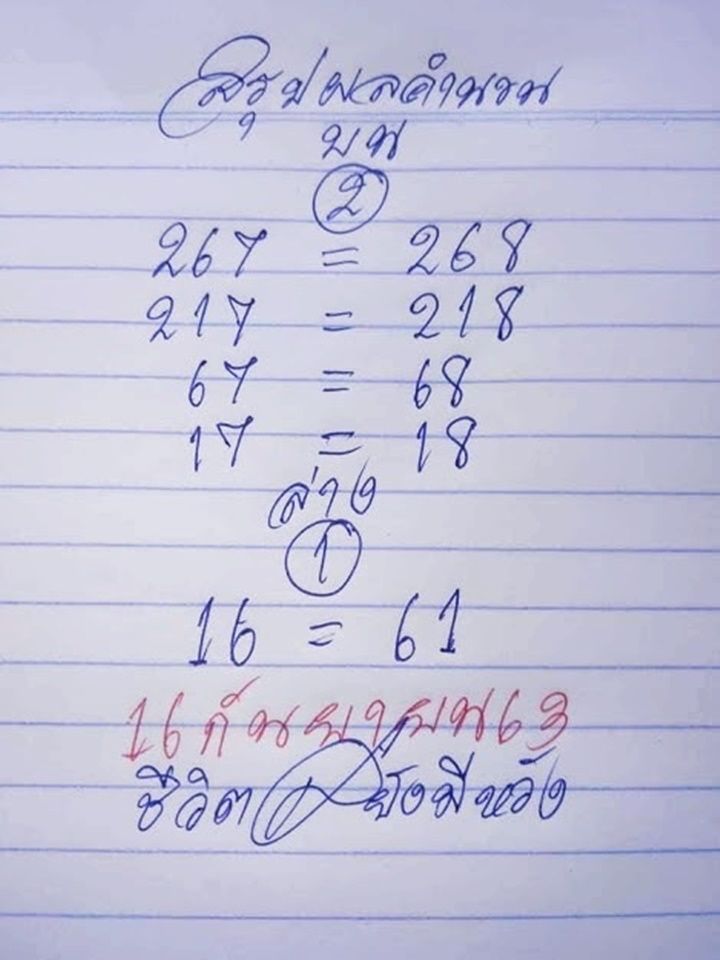 สรุปผลคำนวน
บน
2
267 = 268
217 = 218
67 = 68
17 = 18
ล่าง
1
16 = 61
16 กันยายน 63
ชีวิต ยังมีหวัง